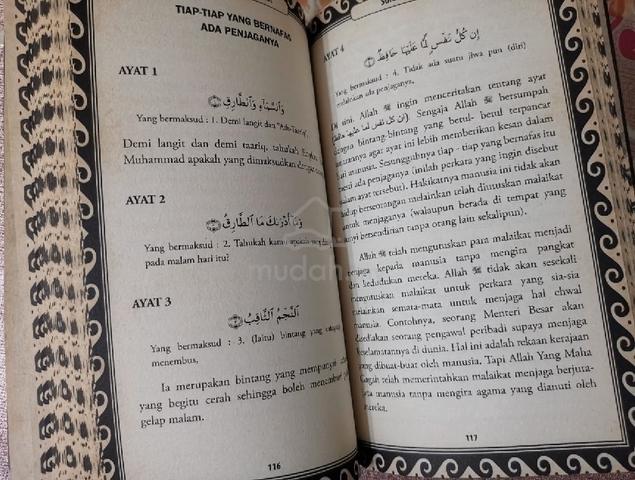 TIAP-TIAP YANG BERNAFAS
ADA PENJAGANYA
AYAT 1
وَٱلسَّمَآءِ وَٱلطَّارِقِ
Yang bermaksud : 1. Demi langit dan
Demi langit dan demi taariq,
Muhammad apakah yang dimaksudkan dengan
AYAT 2
وَمَآ أَدْرَىٰكَ مَا ٱلطَّارِقُ
Yang bermaksud : 2. Tahukah kamu apakah yang
pada malam hari itu?
AYAT 3
ٱلنَّجْمُ ٱلثَّاقِبُ
Yang bermaksud : 3. (Iaitu) bintang yang
menembus,
Ia merupakan bintang yang mempunyai
yang begitu cerah sehingga boleh menembus
gelap malam.
116
AYAT 4
إِن كُلُّ نَفْسٍ لَّمَّا عَلَيْهَا حَافِظٌ
Yang bermaksud : 4. Tidak ada suatu jiwa pun (diri)
melainkan ada penjaganya.
Di sini, Allah ingin menceritakan tentang ayat
Sengaja Allah bersumpah
dengan bintang-bintang yang betul- betul terpancar
cahayanya agar ayat ini lebih memberikan kesan dalam
hati manusia. Sesungguhnya tiap - tiap yang bernafas itu
ada penjaganya (inilah perkara yang ingin disebut
dalam ayat tersebut). Hakikatnya manusia ini tidak akan
hidup berseorangan melainkan telah diutuskan malaikat
untuk menjaganya (walaupun berada di tempat yang
bersendirian tanpa orang lain sekalipun).
Allah telah mengutuskan para malaikat menjadi
penjaga kepada manusia tanpa mengira pangkat
dan kedudukan mereka. Allah tidak akan sesekali-
mengutuskan malaikat untuk perkara yang sia-sia
melainkan semata-mata untuk menjaga hal ehwal
manusia. Contohnya, seorang Menteri Besar akan
disediakan seorang pengawal peribadi supaya menjaga
keselamatannya di dunia. Hal ini adalah rekaan kerajaan
yang dibuat-buat oleh manusia. Tapi Allah Yang Maha
telah memerintahkan malaikat menjaga berjuta-
juta manusia tanpa mengira agama yang dianuti oleh
mereka.
117
mudah